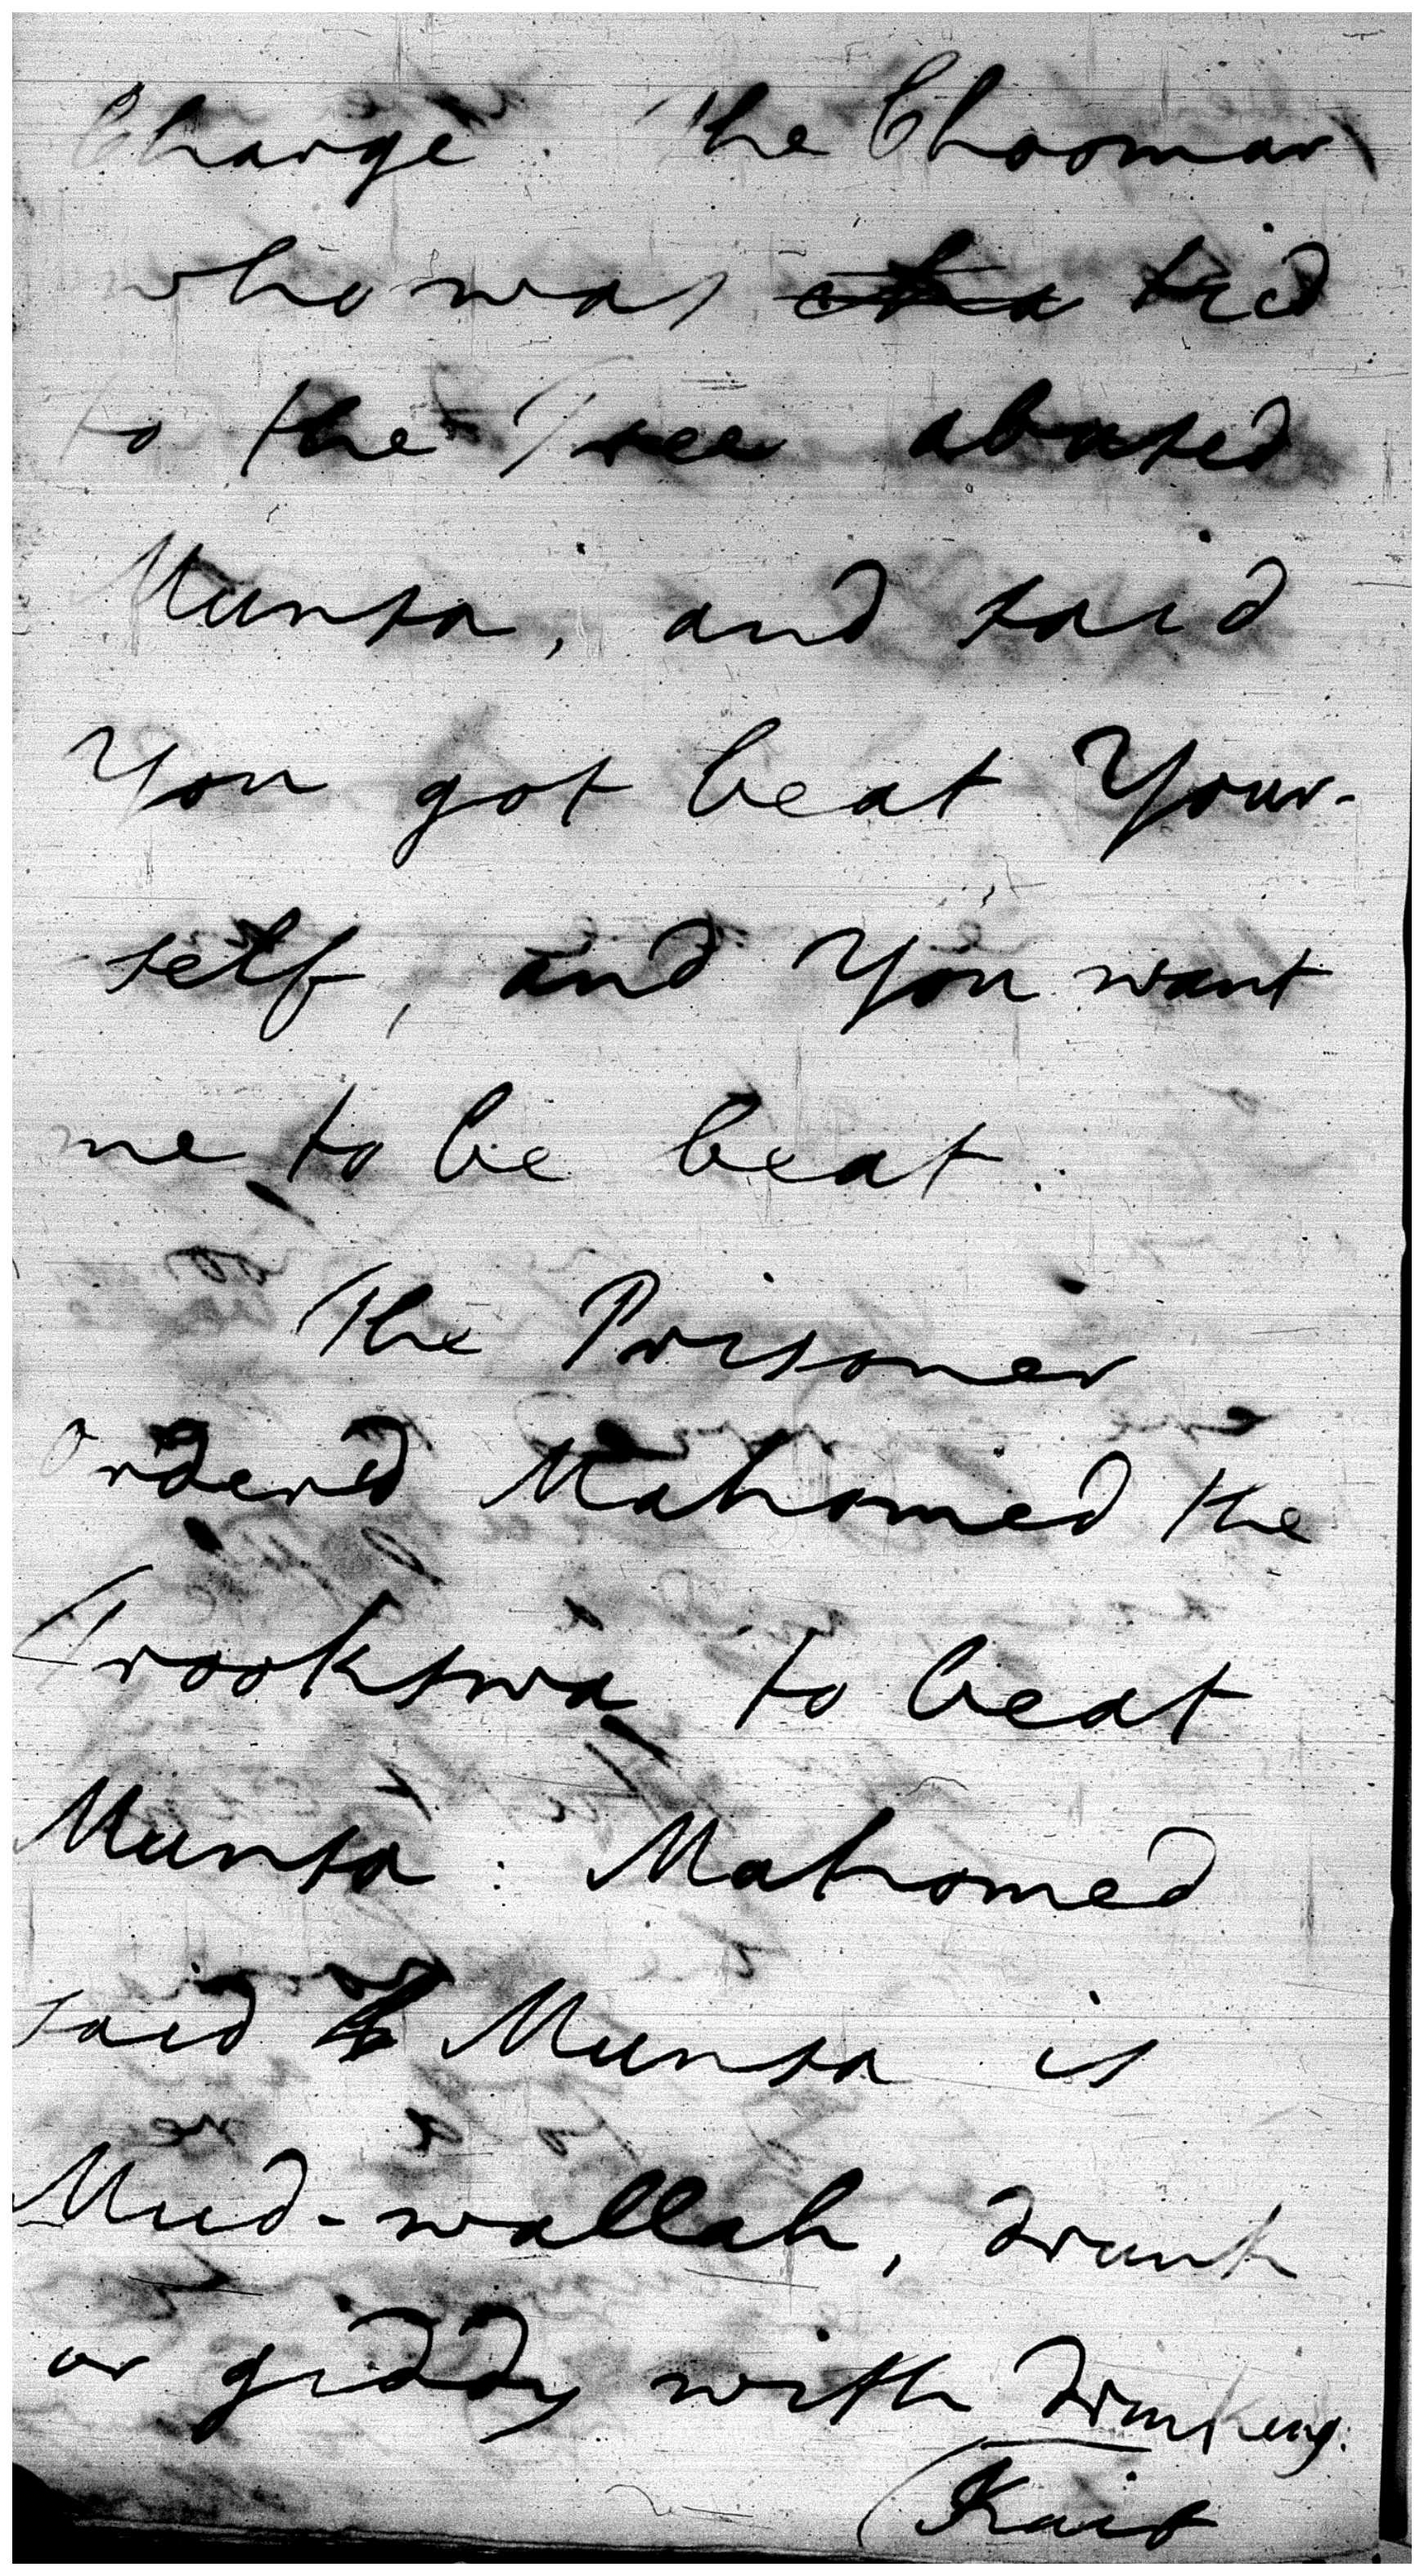 Charge. The Choomar
who was tied
to the Tree abused
Munsa, and said
You got beat Your-
self, and You want
me to be beat.
The Prisoner
ordered Mahomed the
Trookswa to beat
Munsa: Mahomed
said Munsa is
Mud-wallah, drunk
or giddy with drinking.